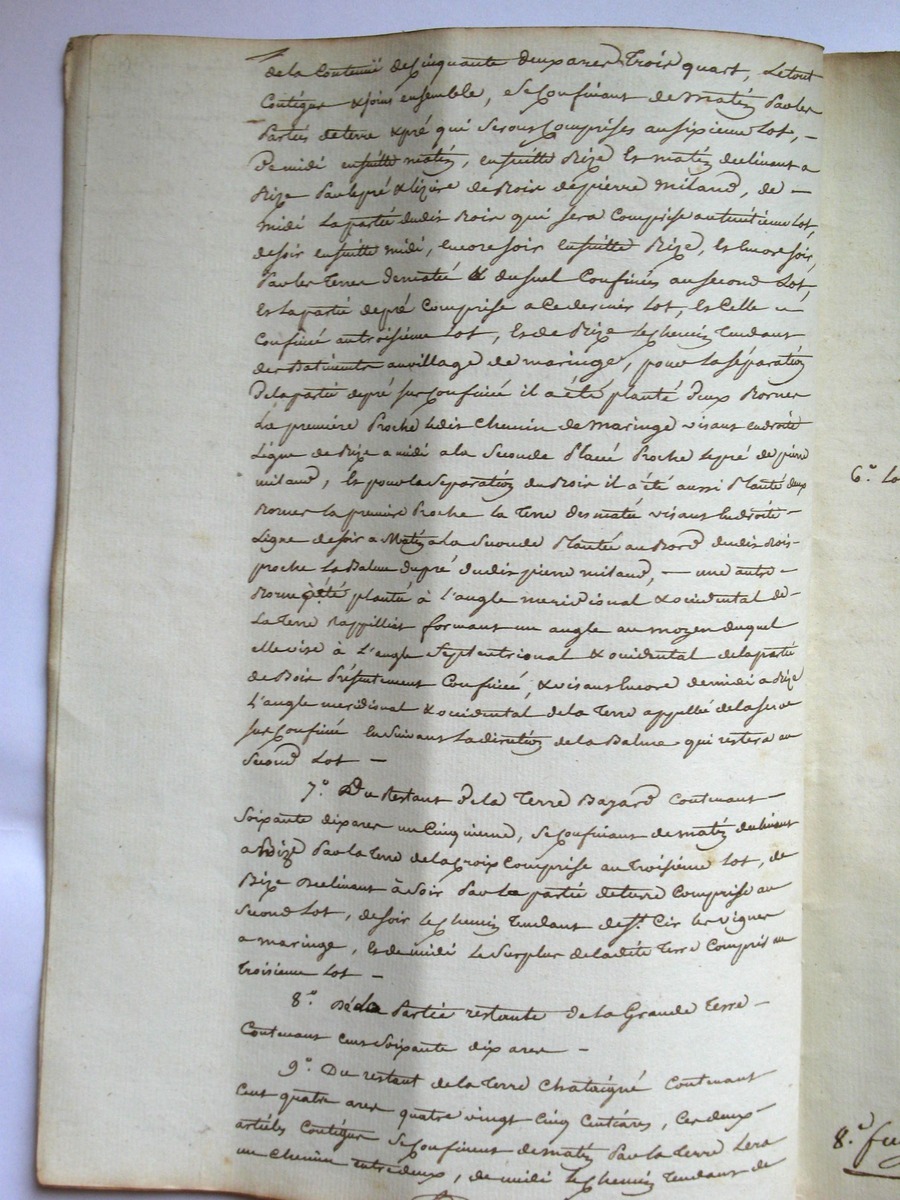 de la Contenüe de Cinquante deux ares Trois quart, Le tout
Contigus & joins ensemble, se Confinant de matin Par les
Parties de terre & pré qui seront Comprises au sixieme Lot, –
De midi ensuitte matin, ensuitte Bize Et matin declinant a
Bize Par le pré & lizière de Bois de pierre miland, de –
midi La partie dudit Bois qui sera Comprise au Lot,
de soir ensuitte midi, encore soir ensuitte Bize, Et Encore soir,
Par les Terres & du suel Confinées au second Lot,
Et La partie de pré Comprise a Ce dernier Lot, Et Celle
Confiné au troisiéme Lot, Et de Bize Le Chemin Tendant
des Batiments au village de maringe, pour La séparation
De la partie de pré sus Confiné il a été planté deux Bornes
La première Proche ledit Chemin de Maringe visant en droite
Ligne de Bize a midi a la Seconde Placé Proche le pré de pierre
miland, Et pour la Separation du Bois il a été aussi Planté deux
Bornes la première Proche la Terre visant En droite –
Ligne de soir a Matin a La Seconde Plantée au Bord dudit Bois –
proche La Balme du pré dudit pierre miland, — une autre –
Borne a été planté à L'angle meridional & ocidental de –
La Terre formant un angle au moyen duquel
elle vise à L'angle Septentrional & ocidental de la partie
de Bois Présentement Confinée, & visant Encore de midi a Bize
L'angle meridional & occidental de la Terre appellée
sus Confiné En suivant La direction de la Balme qui restera au
Second Lot –
7.° Du Restant De la Terre Bazard Contenant –
Soixante dix ares un Cinquieme, se Confinant de matin declinant
a Bize Par la Terre de la Croix Comprise au Troisiéme Lot, de
Bize Declinant à Soir Par la partie de terre Comprise au
Second Lot, de soir le Chemin Tendant de St. Cir les vignes
a maringe, Et de midi Le Surplus de la dite Terre Compris au
Troisieme Lot –
8.° De La Partie restante de La Grande Terre –
Contenant Cent Soixante dix ares –
9.° Du restant de la Terre Chataigné Contenant
Cent quatre ares quatre vingt Cinq Centiares, Ces deux –
articles Contigus se Confinent de matin Par la Terre
un Chemin entre deux, de midi Le Chemin Tendant de
6.°
8.°